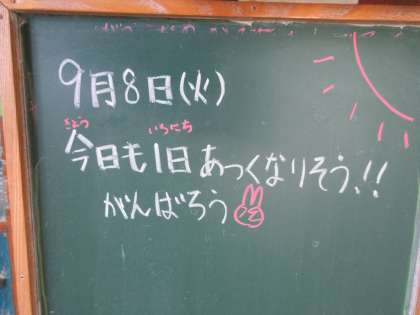 9月8日(火)
きょう いちにち
今日も1日あつくなりそう!!
がんばろう